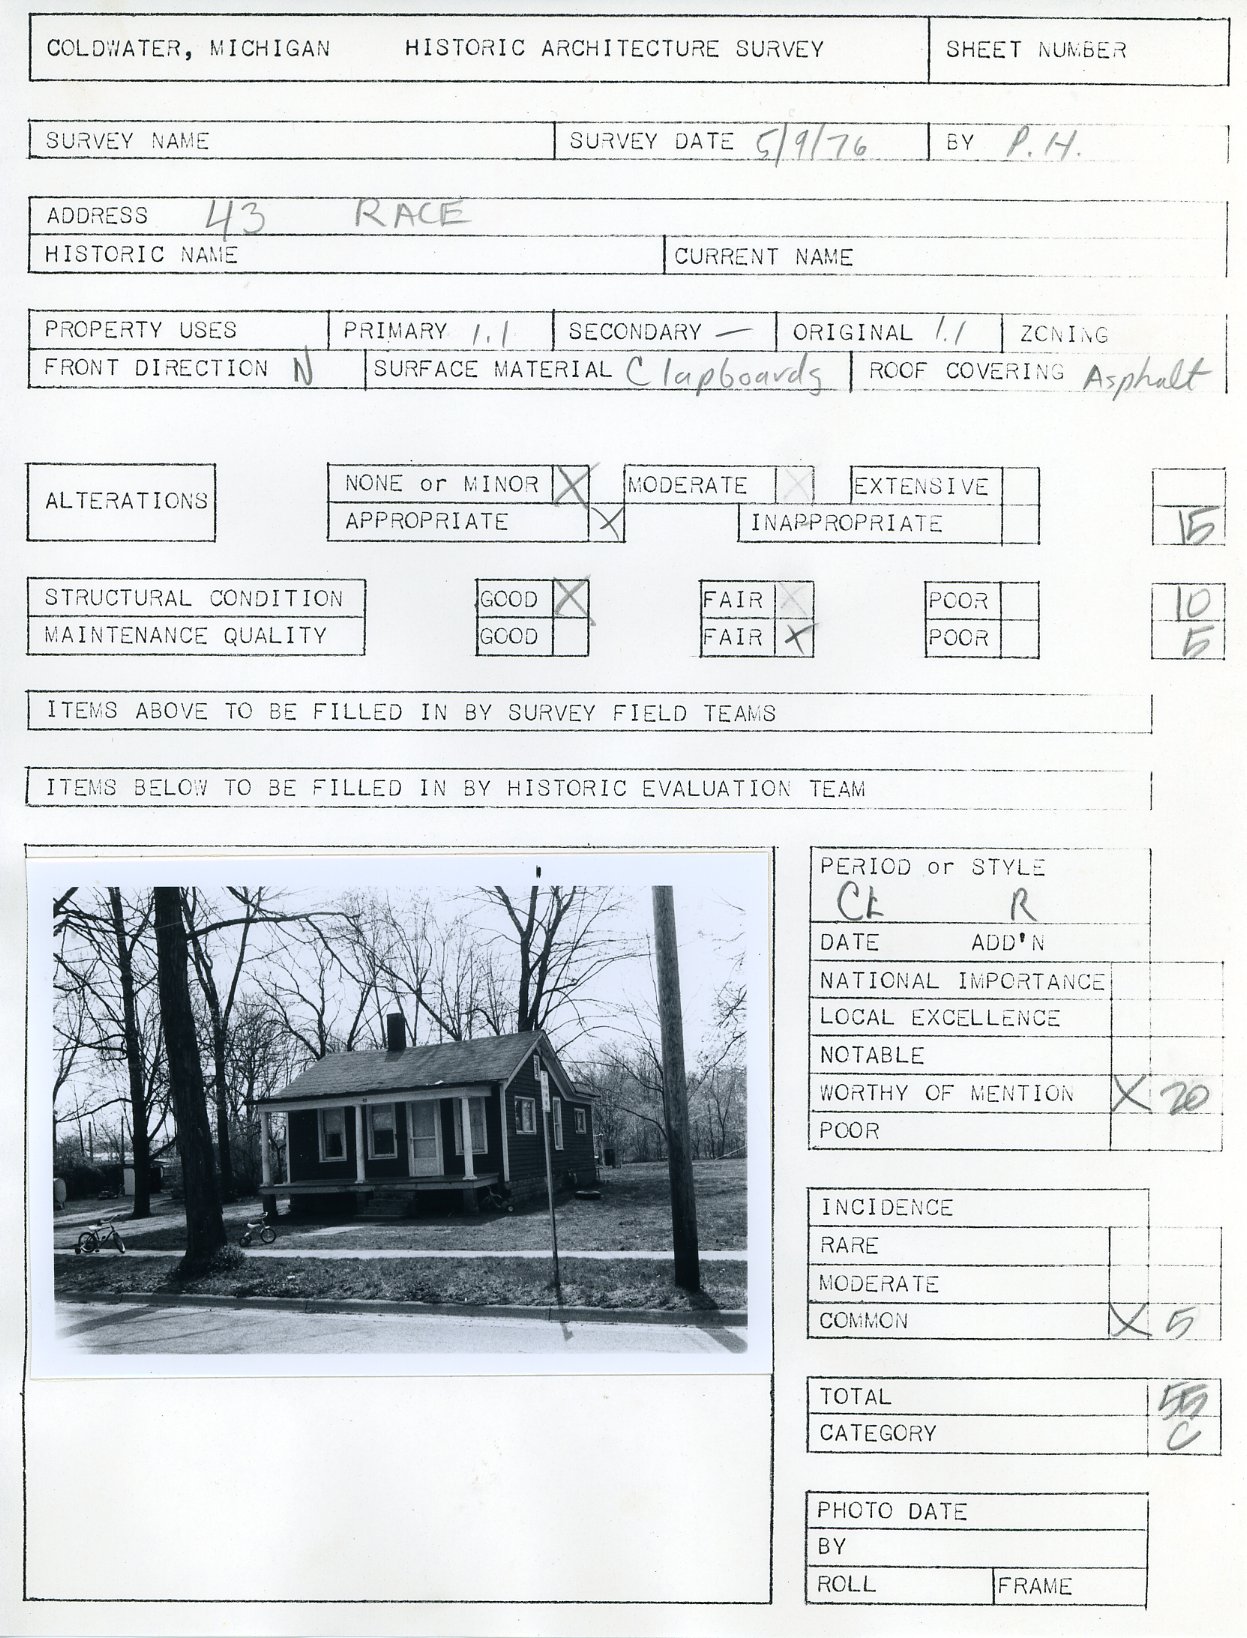 COLDWATER, MICHIGAN HISTORIC ARCHITECTURE SURVEY SHEET NUMBER
SURVEY NAME SURVEY DATE 5/9/76 BY P.H.
ADDRESS 43 RACE
HISTORIC NAME CURRENT NAME
PROPERTY USES PRIMARY 1.1 SECONDARY — ORIGINAL 1.1 ZONING
FRONT DIRECTION N SURFACE MATERIAL Clapboards ROOF COVERING Asphalt
ALTERATIONS
NONE or MINOR X MODERATE X EXTENSIVE
APPROPRIATE X INAPPROPRIATE 15
STRUCTURAL CONDITION GOOD X FAIR X POOR 10
MAINTENANCE QUALITY GOOD FAIR X POOR 5
ITEMS ABOVE TO BE FILLED IN BY SURVEY FIELD TEAMS
ITEMS BELOW TO BE FILLED IN BY HISTORIC EVALUATION TEAM
PERIOD or STYLE
R
DATE ADD'N
NATIONAL IMPORTANCE
LOCAL EXCELLENCE
NOTABLE
WORTHY OF MENTION X 20
POOR
INCIDENCE
RARE
MODERATE
COMMON X 5
TOTAL 55
CATEGORY C
PHOTO DATE
BY
ROLL FRAME